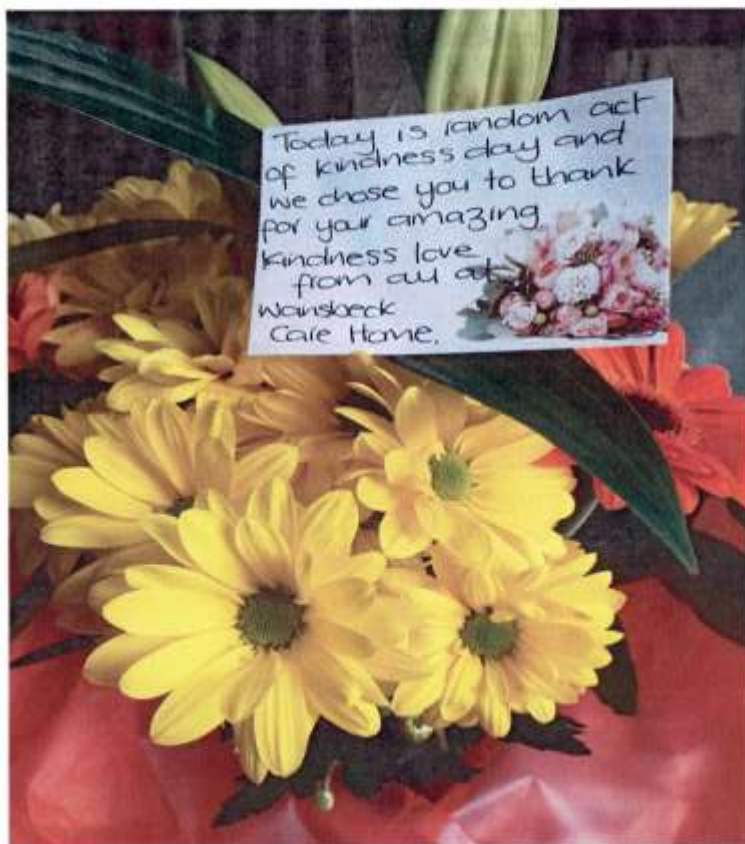 Today is random act
of kindness day and
we chose you to thank
for your amazing
kindness love
from all at
Wansbeck
Care Home.